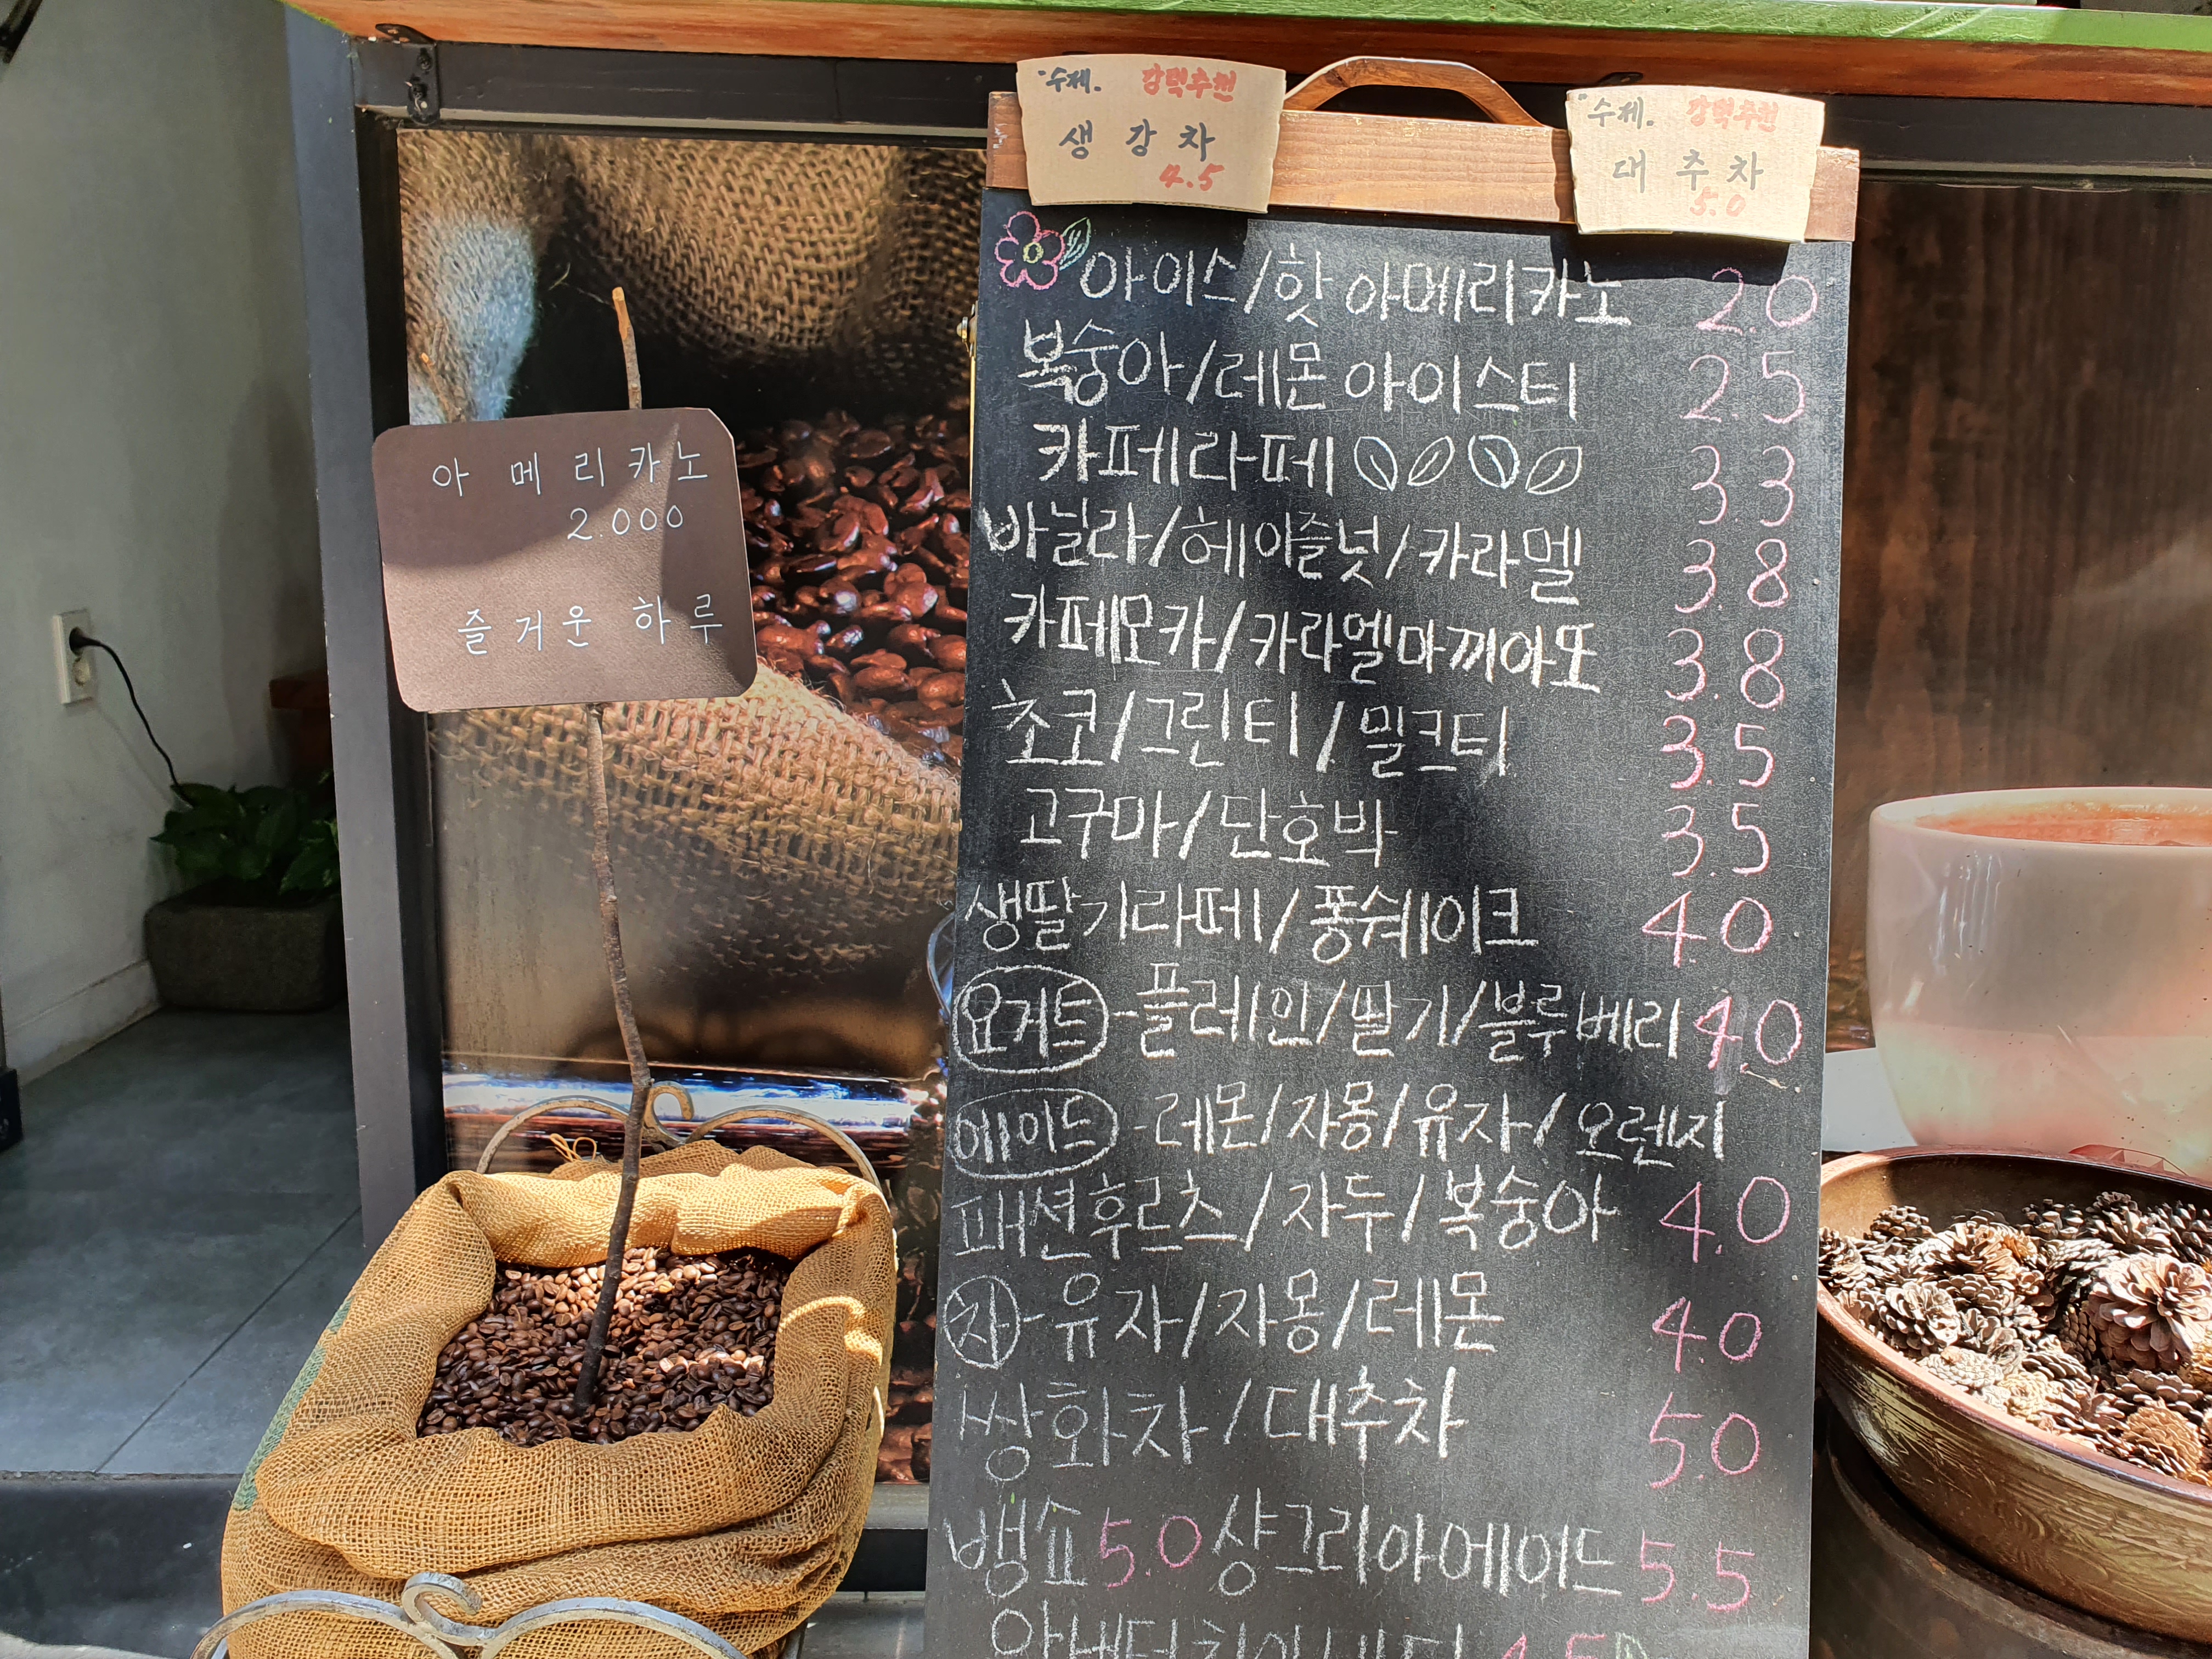 수제. 강력추천
생강차
4.5
수제. 강력추천
대추차
5.0
아메리카노
2.000
즐거운 하루
아이스/핫 아메리카노 2.0
복숭아/레몬 아이스티 2.5
카페라떼 3.3
바닐라/헤이즐넛/카라멜 3.8
카페모카/카라멜마끼아또 3.8
초코/그린티/밀크티 3.5
고구마/단호박 3.5
생딸기라떼/퐁쉐이크 4.0
요거트-플레인/딸기/블루베리 4.0
에이드-레몬/자몽/유자/오렌지
패션후르츠/자두/복숭아 4.0
차-유자/자몽/레몬 4.0
쌍화차/대추차 5.0
뱅쇼 5.0 샹그리아에이드 5.5